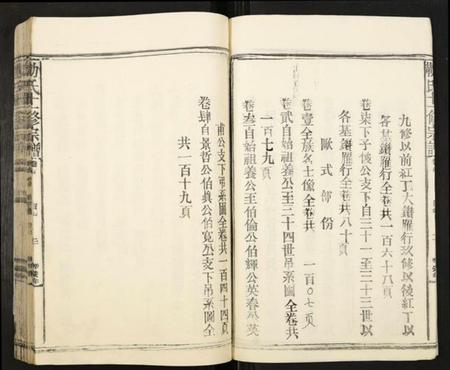 九修以前紅丁大鏽羅行玖修以後紅丁以
各基鏽羅行全卷共一百六十八頁
卷柒下予俊公支下自三十一至三十三世以
各基鏽羅行全卷共八十頁
歐式部份
卷壹全族名士像全卷共 一百〇七頁
卷貳自始祖養公至三十四世吊系圖全卷共
一百七九頁
卷叁自始祖養公至伯倫公伯輝公英春公英
甫公支下吊系圖全卷共一百四十四頁
卷肆自景哲公伯真公伯寬公支下吊系圖全
共一百十九頁
氏十修宗譜